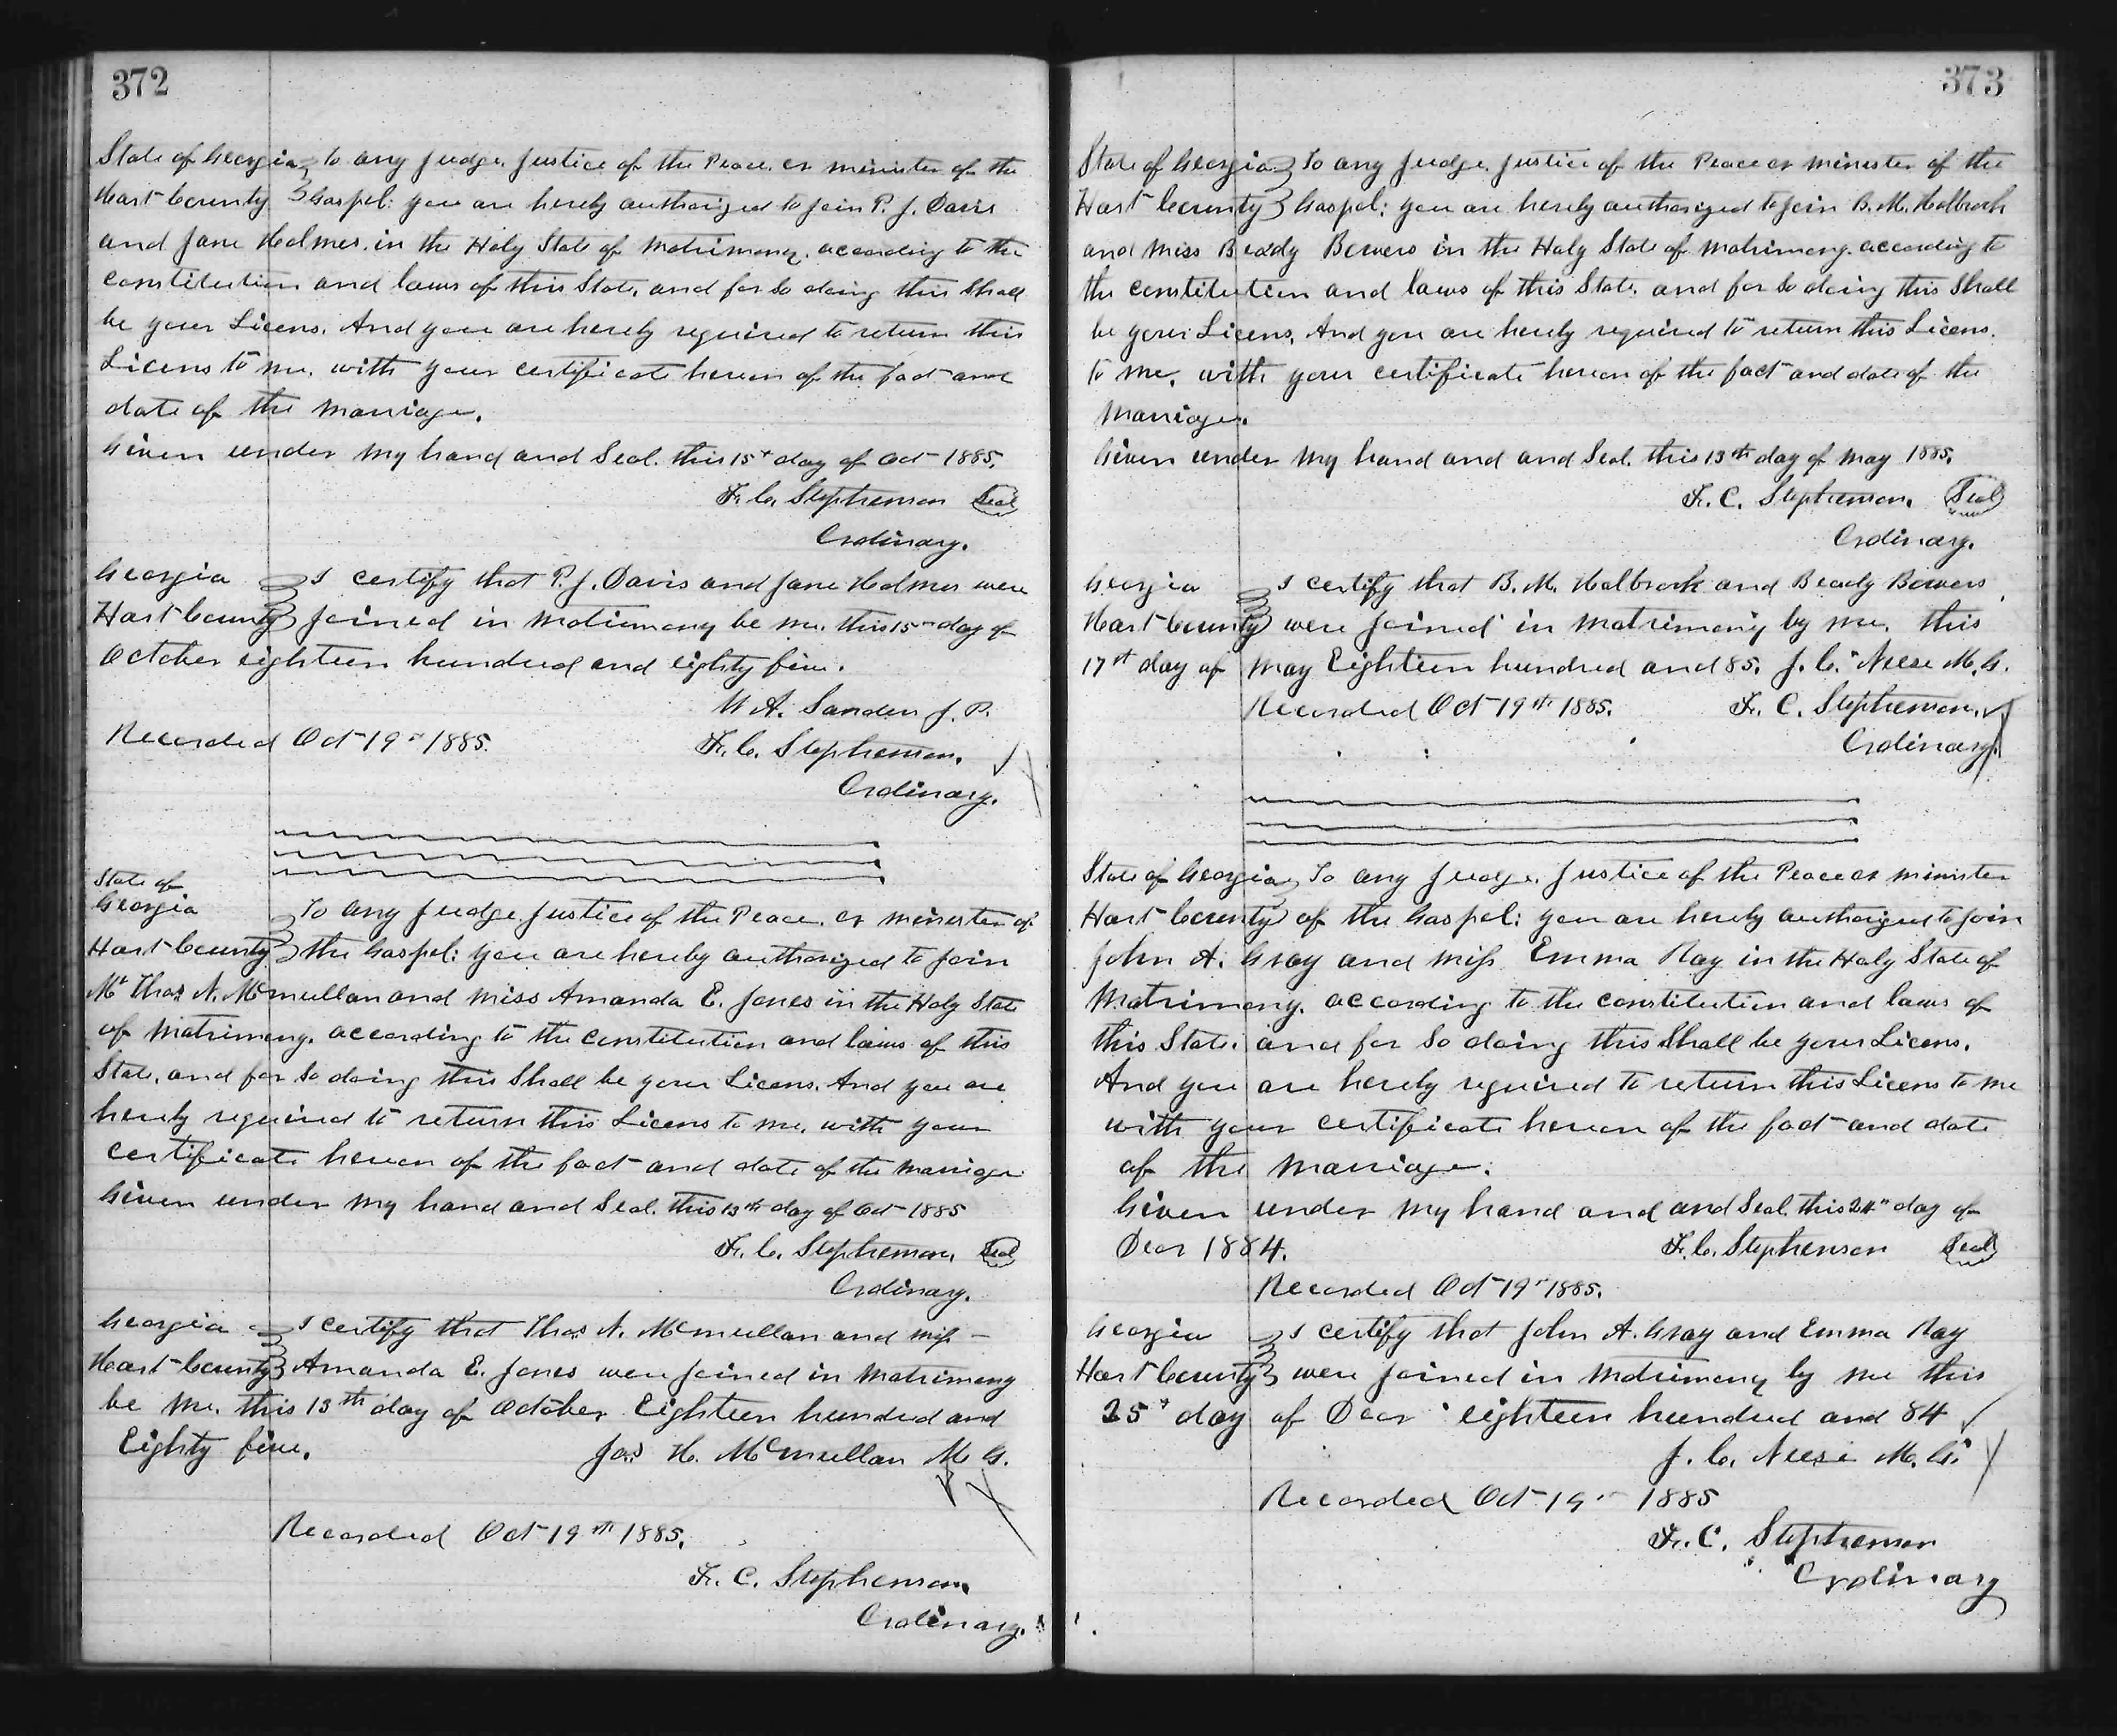 372
State of Georgia to any Judge. Justice of the Peace. or minister of the
Hart County Gospel: you are hereby authorized to join P. J. Davis
and Jane Holmes. in the Holy State of matrimony. according to the
constitution and laws of this State, and for so doing this shall
be your Licens. And you are hereby required to return this
Licens to me. with your certificate hereon of the fact and
date of the marriage.
Given under my hand and Seal. this 15t day of Oct 1885.
F. C. Stephenson Seal
Ordinary.
Georgia I certify that P. J. Davis and Jane Holmes were
Hart County Joined in matrimony be me. this 15th day of
October eighteen hundred and eighty five.
W A. Sanders J. P.
Recorded Oct 19th 1885.
F. C. Stephenson.
Ordinary.
State of
Georgia
To any Judge. Justice of the Peace. or minister of
Hart County the Gospel: you are hereby authorized to join
Mr Thos N. McMullan and miss Amanda E. Jones in the Holy State
of matrimony. according to the constitution and laws of this
State, and for so doing this shall be your Licens. And you are
hereby required to return this Licens to me. with your
certificate hereon of the fact and date of the marriage
Given under my hand and Seal. this 13th day of Oct 1885
F. C. Stephenson. Seal
Ordinary.
Georgia I certify that Thos N. McMullan and miss
Hart County Amanda E. Jones were joined in matrimony
be me. this 13th day of October Eighteen hundred and
Eighty five. Jas H. McMullan M G.
Recorded Oct 19th 1885.
F. C. Stephenson.
Ordinary.
373
State of Georgia To any Judge. Justice of the Peace or minister of the
Hart County Gospel: you are hereby authorized to join B. M. Holbrook
and Miss Beady Bowers in the Holy State of matrimony. according to
the constitution and laws of this State. and for so doing this shall
be your Licens, And you are hereby required to return this Licens.
to me. with your certificate hereon of the fact and date of the
marriage.
Given under my hand and and Seal. this 13th day of may 1885.
F. C. Stephenson. Seal
Ordinary.
Georgia I certify that B. M. Holbrook and Beady Bowers
Hart County were joined in matrimony by me. this
17st day of may Eighteen hundred and 85. J. C. Neese M. G.
Recorded Oct 19th 1885. F. C. Stephenson.
Ordinary.
State of Georgia To any Judge. Justice of the Peace or minister
Hart County of the Gospel: you are hereby authorized to join
John A. Gray and miss Emma Ray in the Holy State of
Matrimony. according to the constitution and laws of
this State. and for so doing this shall be your Licens.
And you are hereby required to return this Licens to me
with your certificate hereon of the fact and date
of the marriage.
Given under my hand and and Seal. this 24th day of
Decr 1884. F. C. Stephenson Seal
Recorded Oct 19th 1885.
Georgia I certify that John A. Gray and Emma Ray
Hart County were joined in matrimony by me this
25th day of Decr eighteen hundred and 84
J. C. Neese M. G.
Recorded Oct 19th 1885
F. C. Stephenson
Ordinary